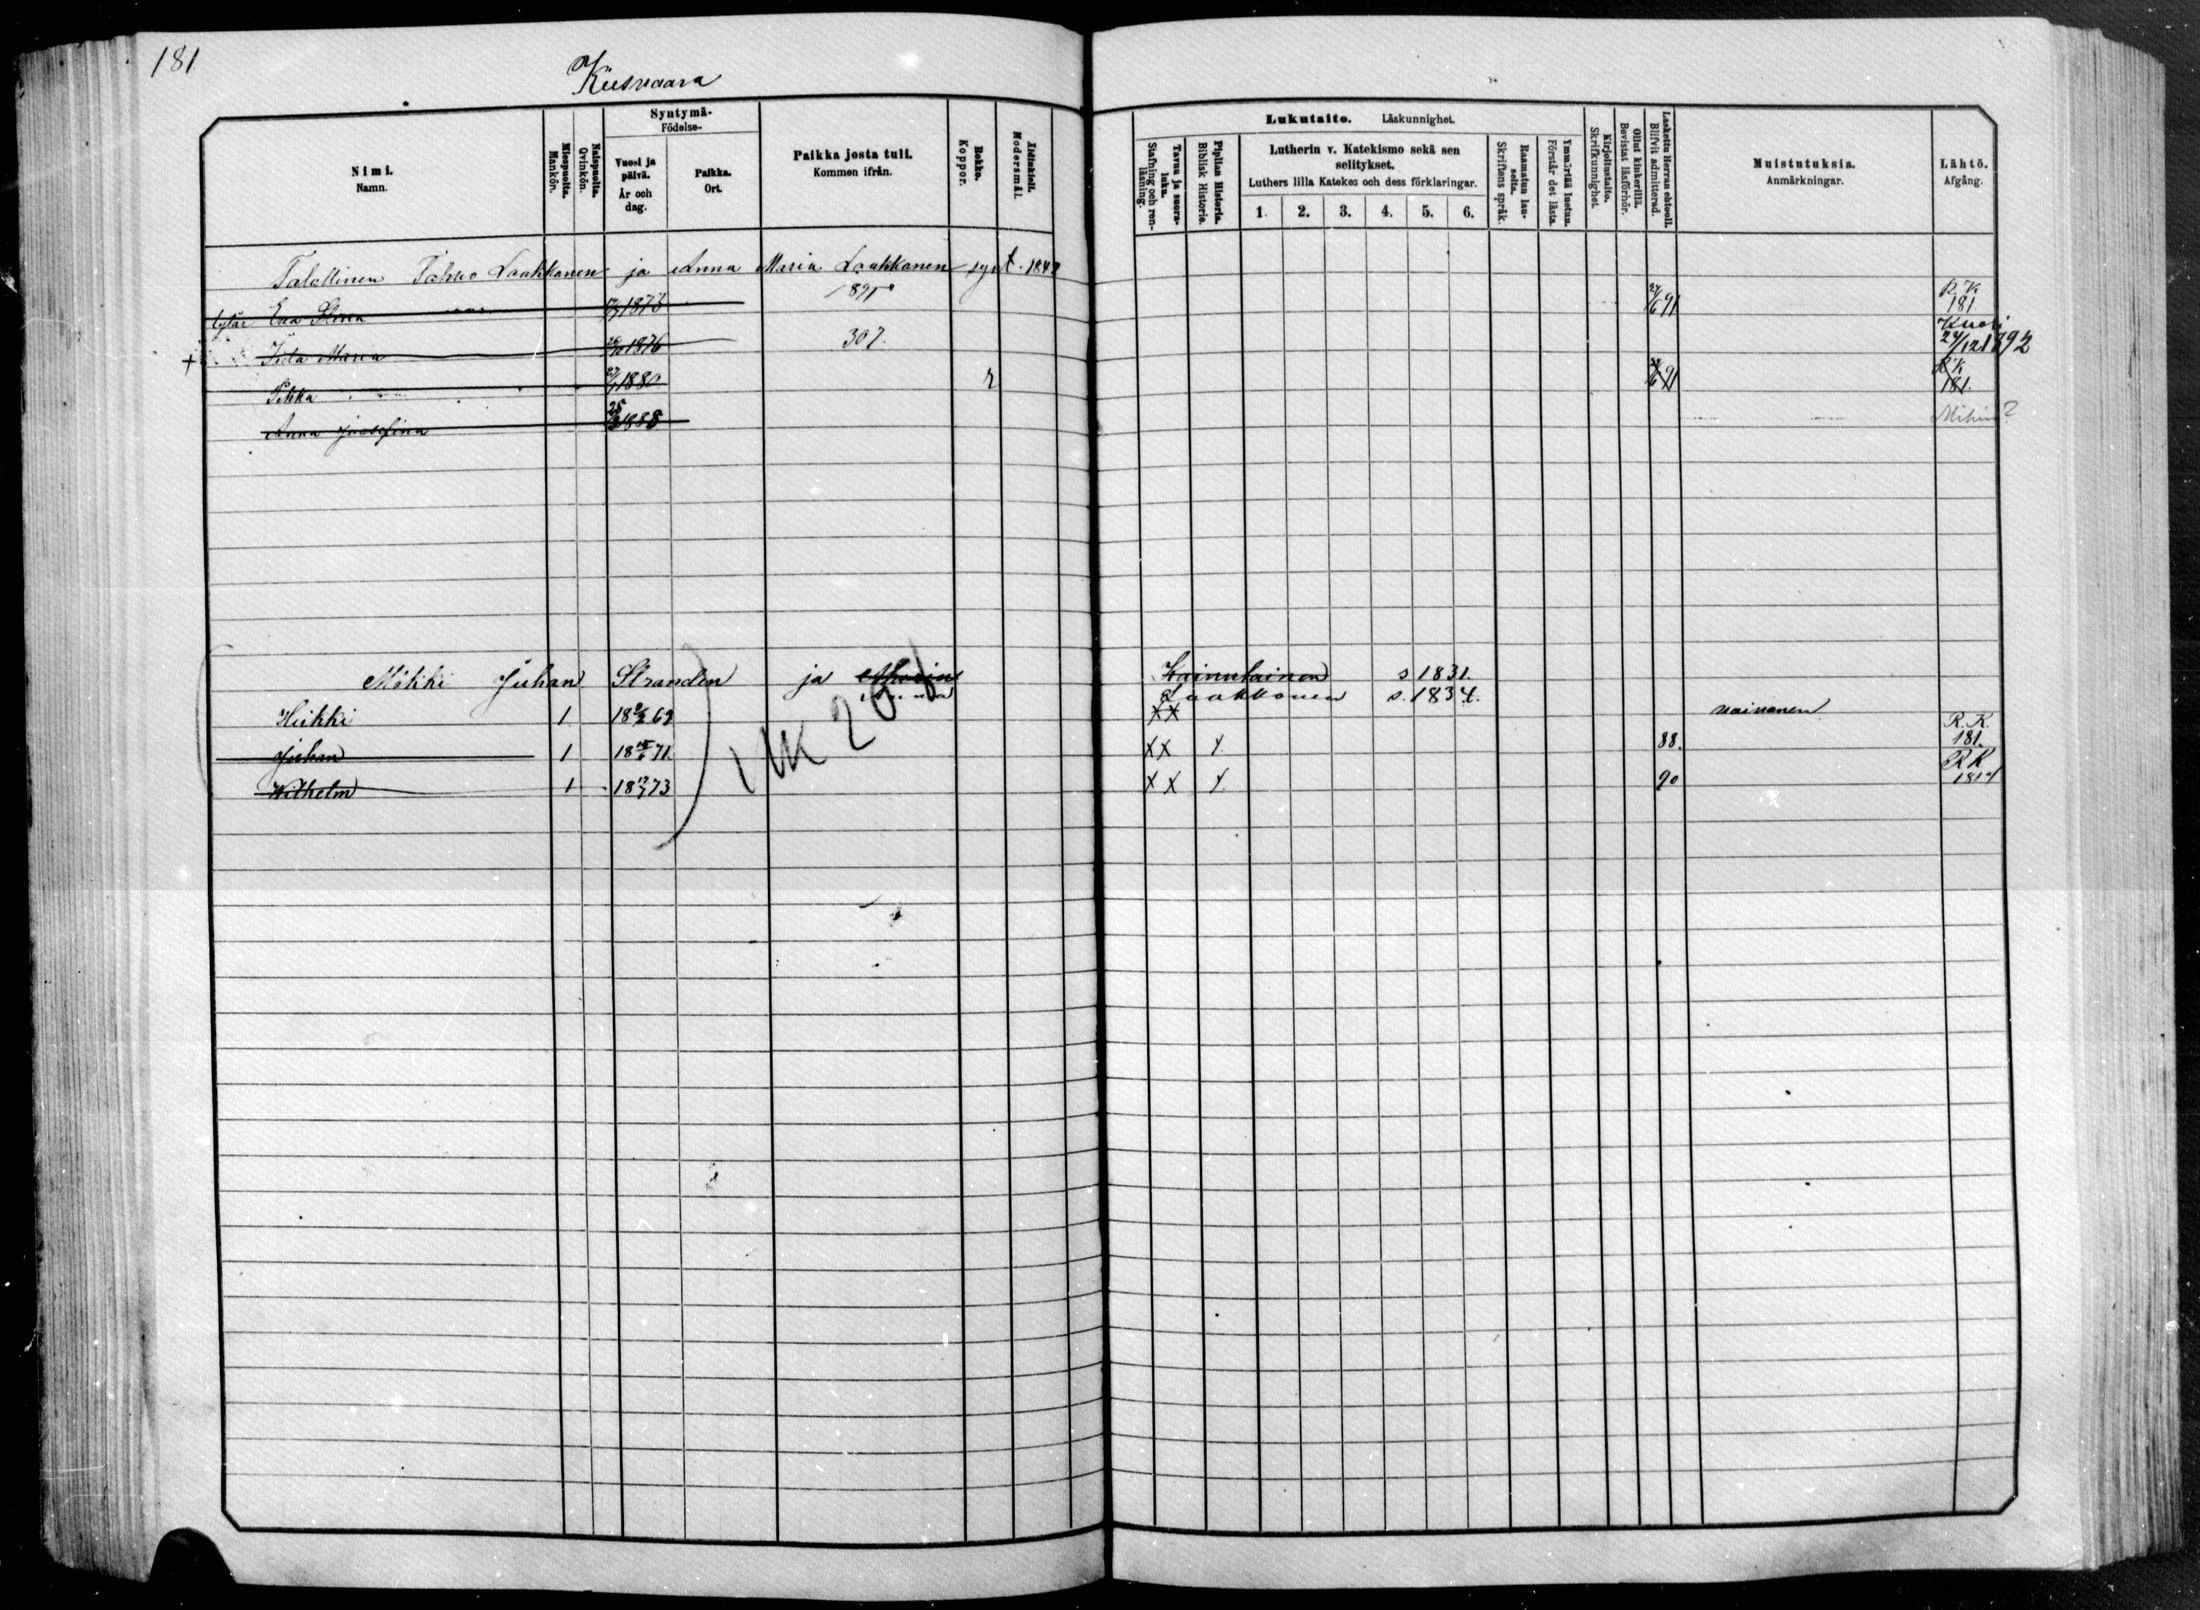 181
Kiisvaara
Nimi. Namn.
Miespuolta. Mankön.
Naispuolta. Qvinkön.
Syntymä- Födelse-
Vuosi ja päivä. År och dag.
Paikka. Ort.
Paikka josta tuli. Kommen ifrån.
Rokko. Koppor.
Äidinkieli. Modersmål.
Lukutaito. Läskunnighet.
Tavuu ja suoraluku. Stafning och renläsning.
Piplian Historia. Biblisk Historie.
Lutherin v. Katekismo sekä sen selitykset.
Luthers lilla Katekes och dess förklaringar.
1. 2. 3. 4. 5. 6.
Raamatun lauseita. Skriftens språk.
Ymmärtää luetun. Förstår det lästa.
Kirjoitustaito. Skrifkunnighet.
Ollut kinkerillä. Bevistat läsförhör.
Laskettu Herran ehtooll. Blifvit admitterad.
Muistutuksia. Anmärkningar.
Lähtö. Afgång.
Talollinen Tahvo Laakkanen ja Anna Maria Laakkanen synt. 1842
tytär Eva Stina 1873 1891 24/6 91 R.K. 181
+ Iida Maria 1876 307. Kuoli 24/12 1892
Pekka 27/1 1880 r 24/6 91 R.K 181.
Anna Josefina 1888
Mökki Juhan Stranden ja Kainulainen s 1831.
Anna Laakkonen s. 1834.
Heikki 1 18 62 XX vaivanen
Juhan 1 18 71. XX X 88. R. K. 181.
Wilhelm 1 18 73 XX X 90 R K 181